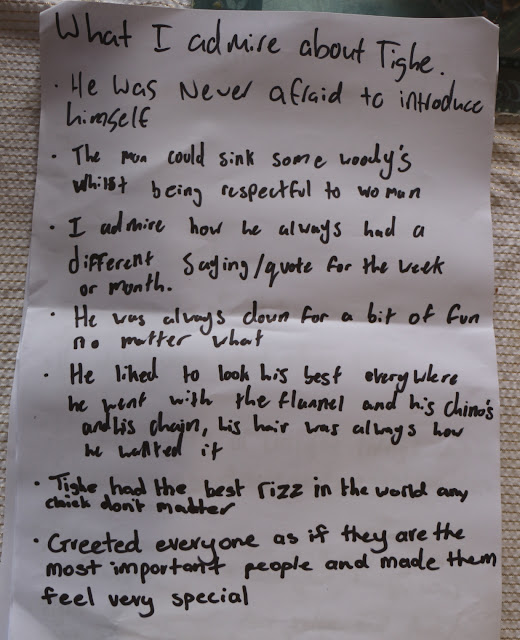 What I admire about Tighe.
· He was Never afraid to introduce
himself
· The man could sink some woody's
whilst being respectful to woman
· I admire how he always had a
different saying/quote for the week
or month.
· He was always down for a bit of fun
no matter what
· He liked to look his best everywhere
he went with the flannel and his chino's
and his chain, his hair was always how
he wanted it
· Tighe had the best rizz in the world any
chick don't matter
· Greeted everyone as if they are the
most important people and made them
feel very special